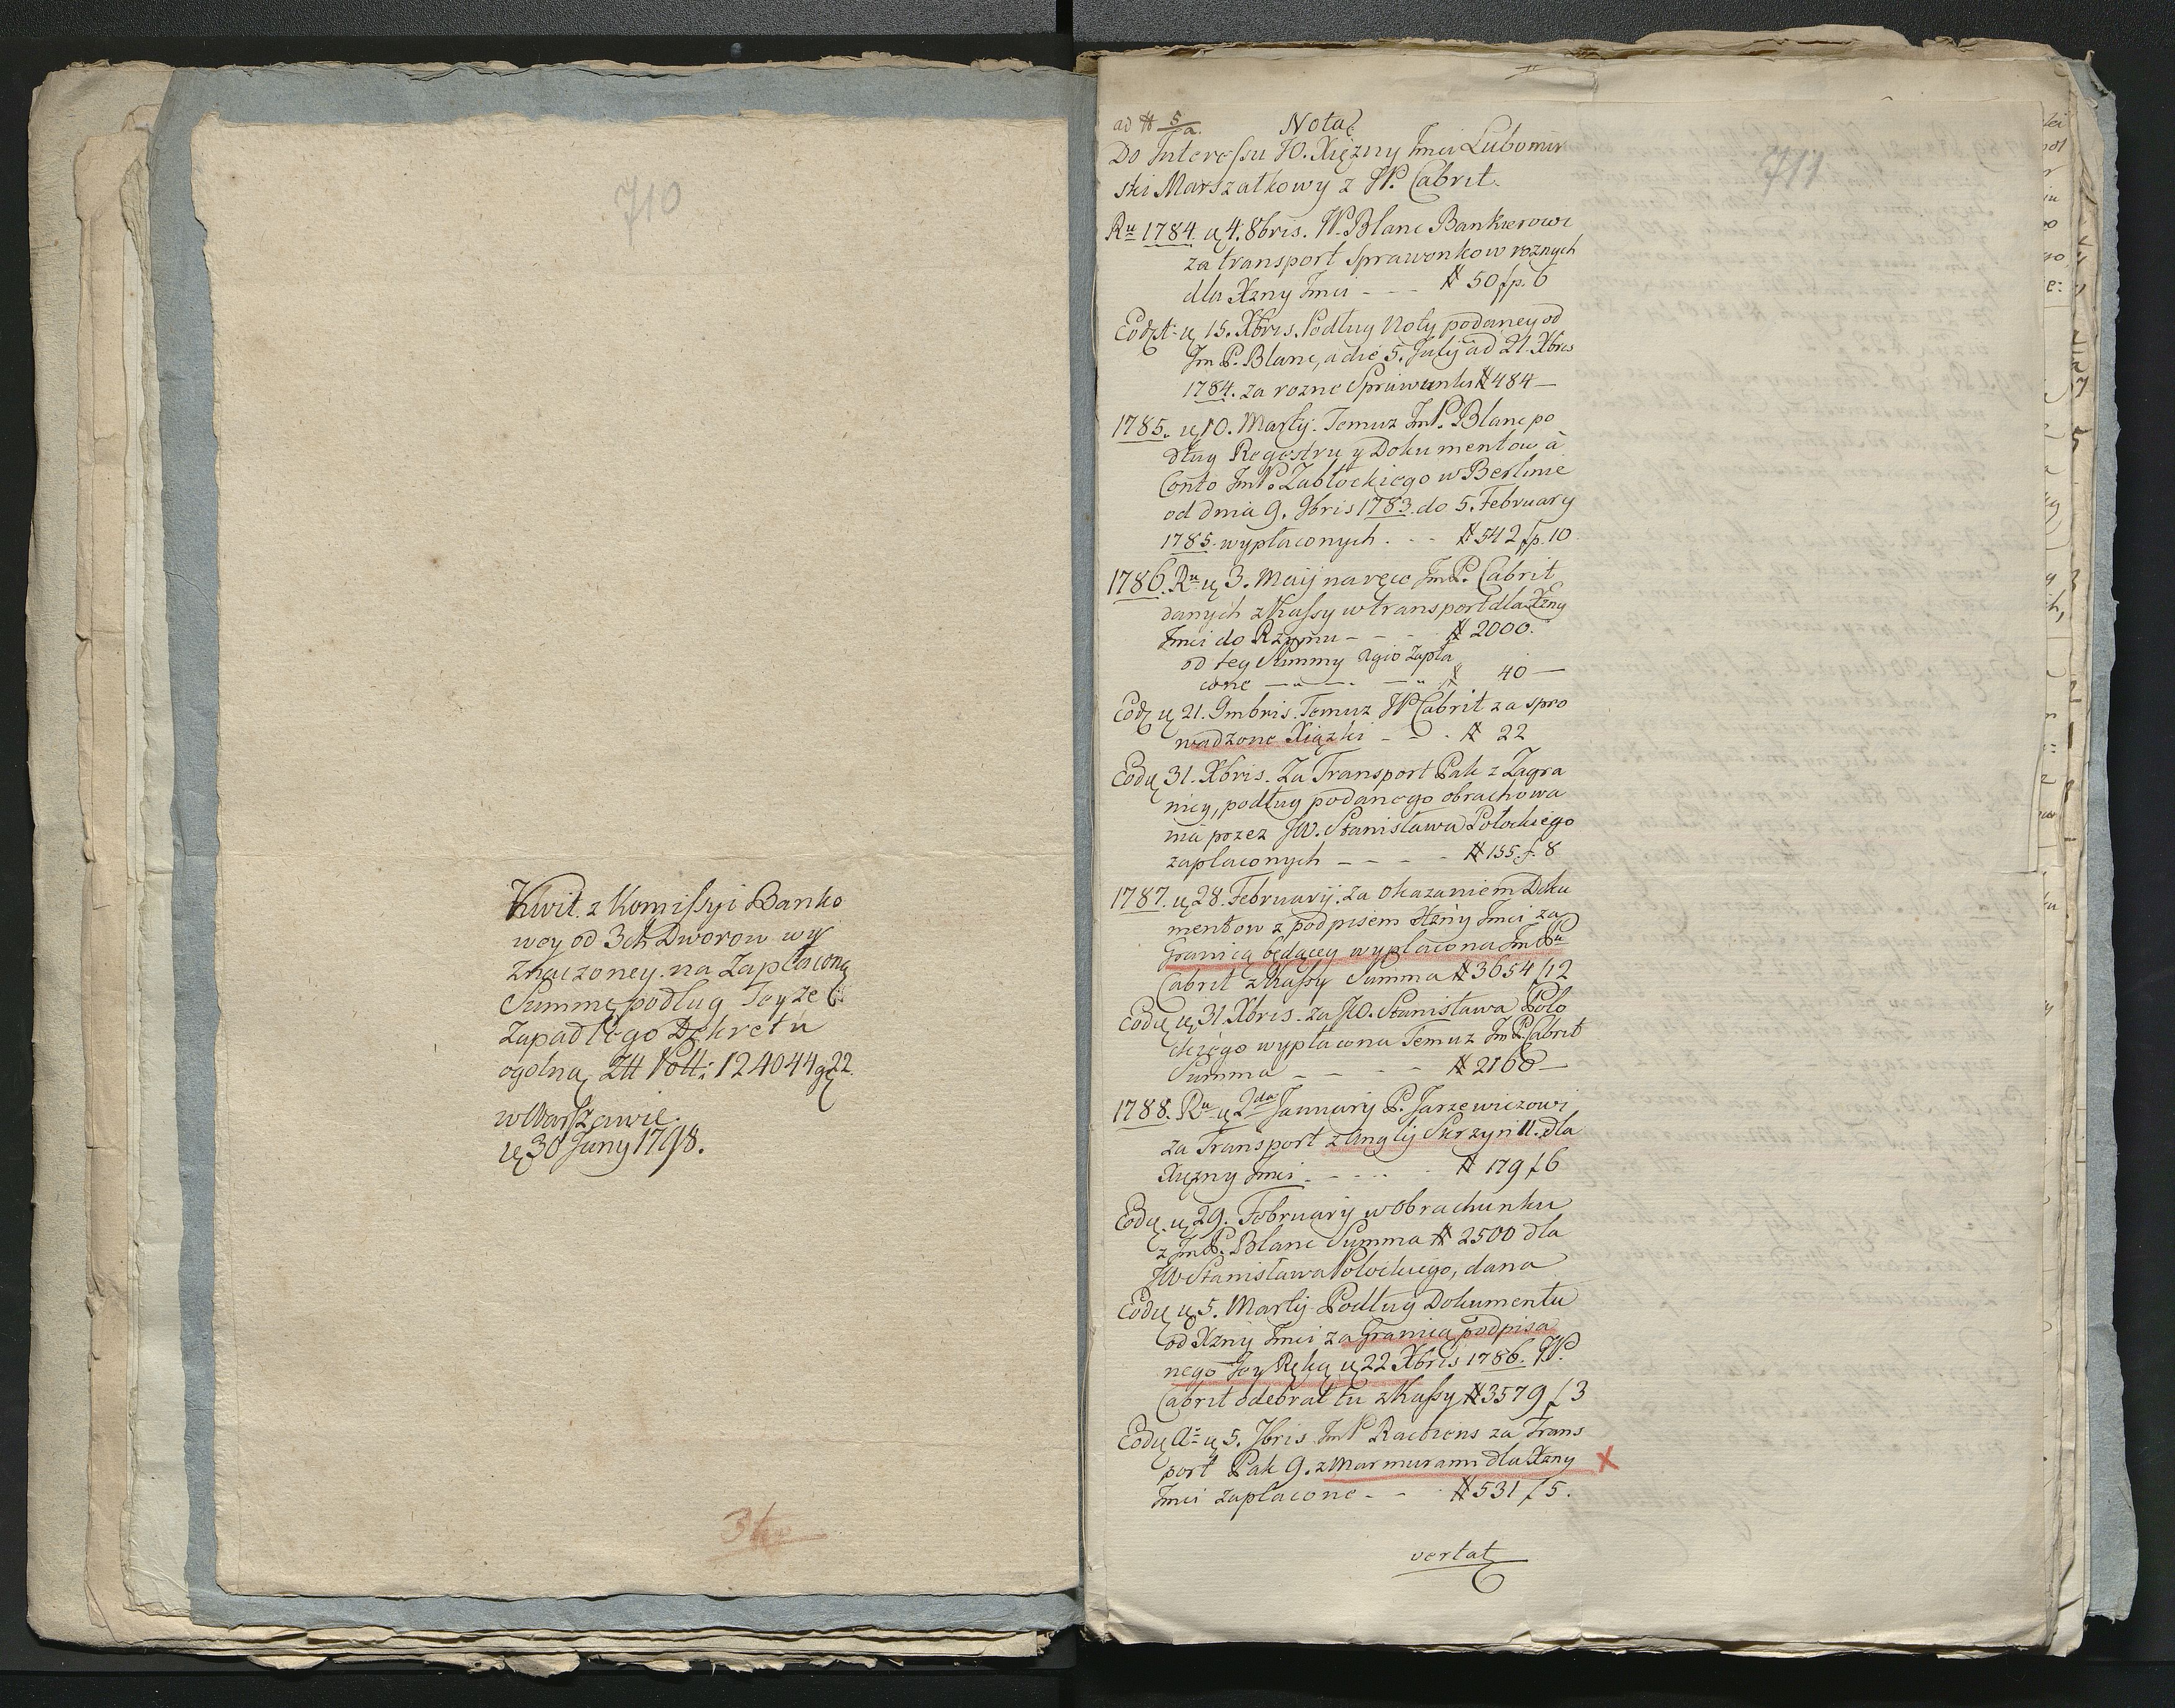 710
Kwit z Komissyi Banko
wey od 3ch Dworow wy
znaczoney na Zapłaconą
Summę podług Teyże
Zapadłego Dekretu
ogolną Złł Poll: 124044 g 22.
w Warszawie
ą 30 Juny 1798.
ad # 5/a. Nota
711
Do Interessu JO. Xiężny Jmci Lubomir
ski Marszałkowy z W. Cabrit.
Ru 1784. ą 4. 8bris. W. Blanc Bankierowi
za transport Sprawonkow roznych
dla Xzny Jmci - - - # 50 fp. 6
Eodz A ą 15. Xbris. Podług Noty podaney od
Jm P. Blanc, a die 5. July ad 21. Xbris
1784. za rozne Sprawunki # 484 —
1785. ą 10. Martij. Temuz JmP. Blanc po
dług Regestru y Dokumentow à
Conto JmP. Zabłockiego w Berlinie
od dnia 9. 9bris 1783. do 5. February
1785. wypłaconych . - - # 542 fp. 10
1786. Ru ą 3. Maij na ręce JmP. Cabrit
danych z Kassy w transport dla Xzny
Jmci do Rzymu - - - # 2000.
od tey Summy Agio Zapła
cone — - — - — # 40 —
Eodz ą 21. 9mbris. Temuz W Cabrit za spro
wadzone Xiązki - - . # 22
Eodę 31. Xbris. Za Transport Pak z Zagra
nicy, podług podanego obrachowa
nia przez JW. Stanisława Potockiego
zapłaconych - - - - # 155. f. 8
1787. ą 28. Februarij. za okazaniem Doku
mentow z podpisem Xzny Jmci za
Granicą będącey wypłacona JmPu
Cabrit z Kassy Summa # 3654 f 12
Eodę ą 31. Xbris. za JW. Stanisława Poto
ckiego wypłacona Temuz JmP. Cabrit
Summa - - - - # 2168 —
1788. Ru ą 2da January P. Jarzewiczowi
za Transport z Anglij Skrzyn 11. dla
Xiężny Jmci. - - - - # 179 f 6
Eodę. ą 29. February w obrachunku
z JmP. Blanc Summa # 2500 dla
JW Stanisława Potockiego, dana
Eodę ą 5. Martij Podług Dokumentu
od Xzny Jmci za Granicą podpisa
nego Jey Ręką ą 22 Xbris 1786. W.
Cabrit odebrał tu z Kassy # 3579 f 3
Eodę A ą 5. 9bris JmP. za Trans
port Pak 9. z Marmurami dla Xzny X
Jmci zapłacone - - # 531 f 5.
vertat